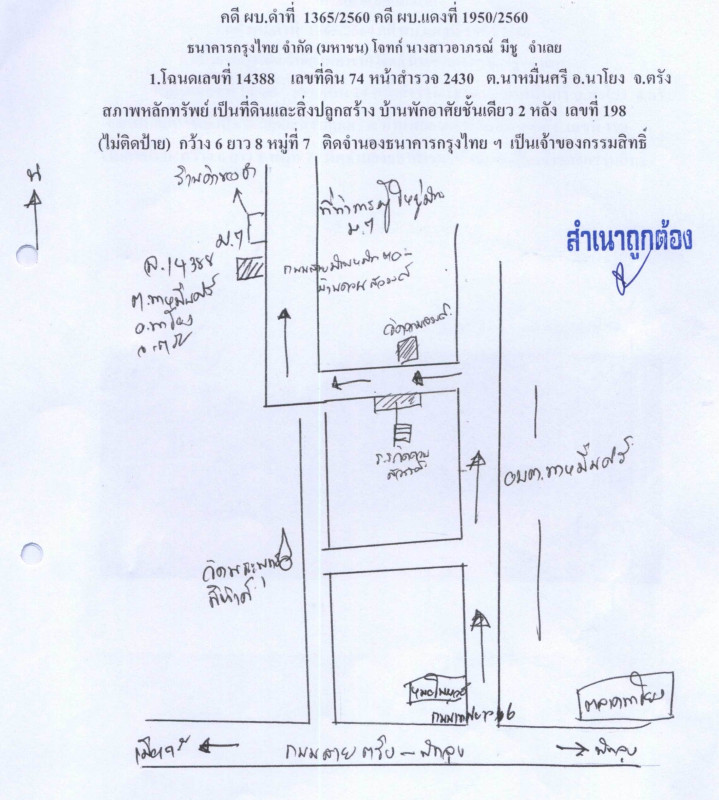 คดี ผบ.ดำที่ 1365/2560 คดี ผบ.แดงที่ 1950/2560
ธนาคารกรุงไทย จำกัด (มหาชน) โจทก์ นางสาวอาภรณ์ มีชู จำเลย
1.โฉนดเลขที่ 14388 เลขที่ดิน 74 หน้าสำรวจ 2430 ต.นาหมื่นศรี อ.นาโยง จ.ตรัง
สภาพหลักทรัพย์ เป็นที่ดินและสิ่งปลูกสร้าง บ้านพักอาศัยชั้นเดียว 2 หลัง เลขที่ 198
(ไม่ติดป้าย) กว้าง 6 ยาว 8 หมู่ที่ 7 ติดจำนองธนาคารกรุงไทย ฯ เป็นเจ้าของกรรมสิทธิ์
น
ร้านค้าของชำ
ที่ทำการผู้ใหญ่บ้าน
ม.7
ม.7
สำเนาถูกต้อง
ฉ.14388
ต.นาหมื่นศรี
อ.นาโยง
จ.ตรัง
บ้านควนสวรรค์
วัดควนสวรรค์
ร.ร.วัดควน
สวรรค์
อบต.นาหมื่นศรี
วัดพระพุทธ
สิหิงค์
ตลาดนาโยง
เมืองตรัง
ถนนสายตรัง - พัทลุง
พัทลุง